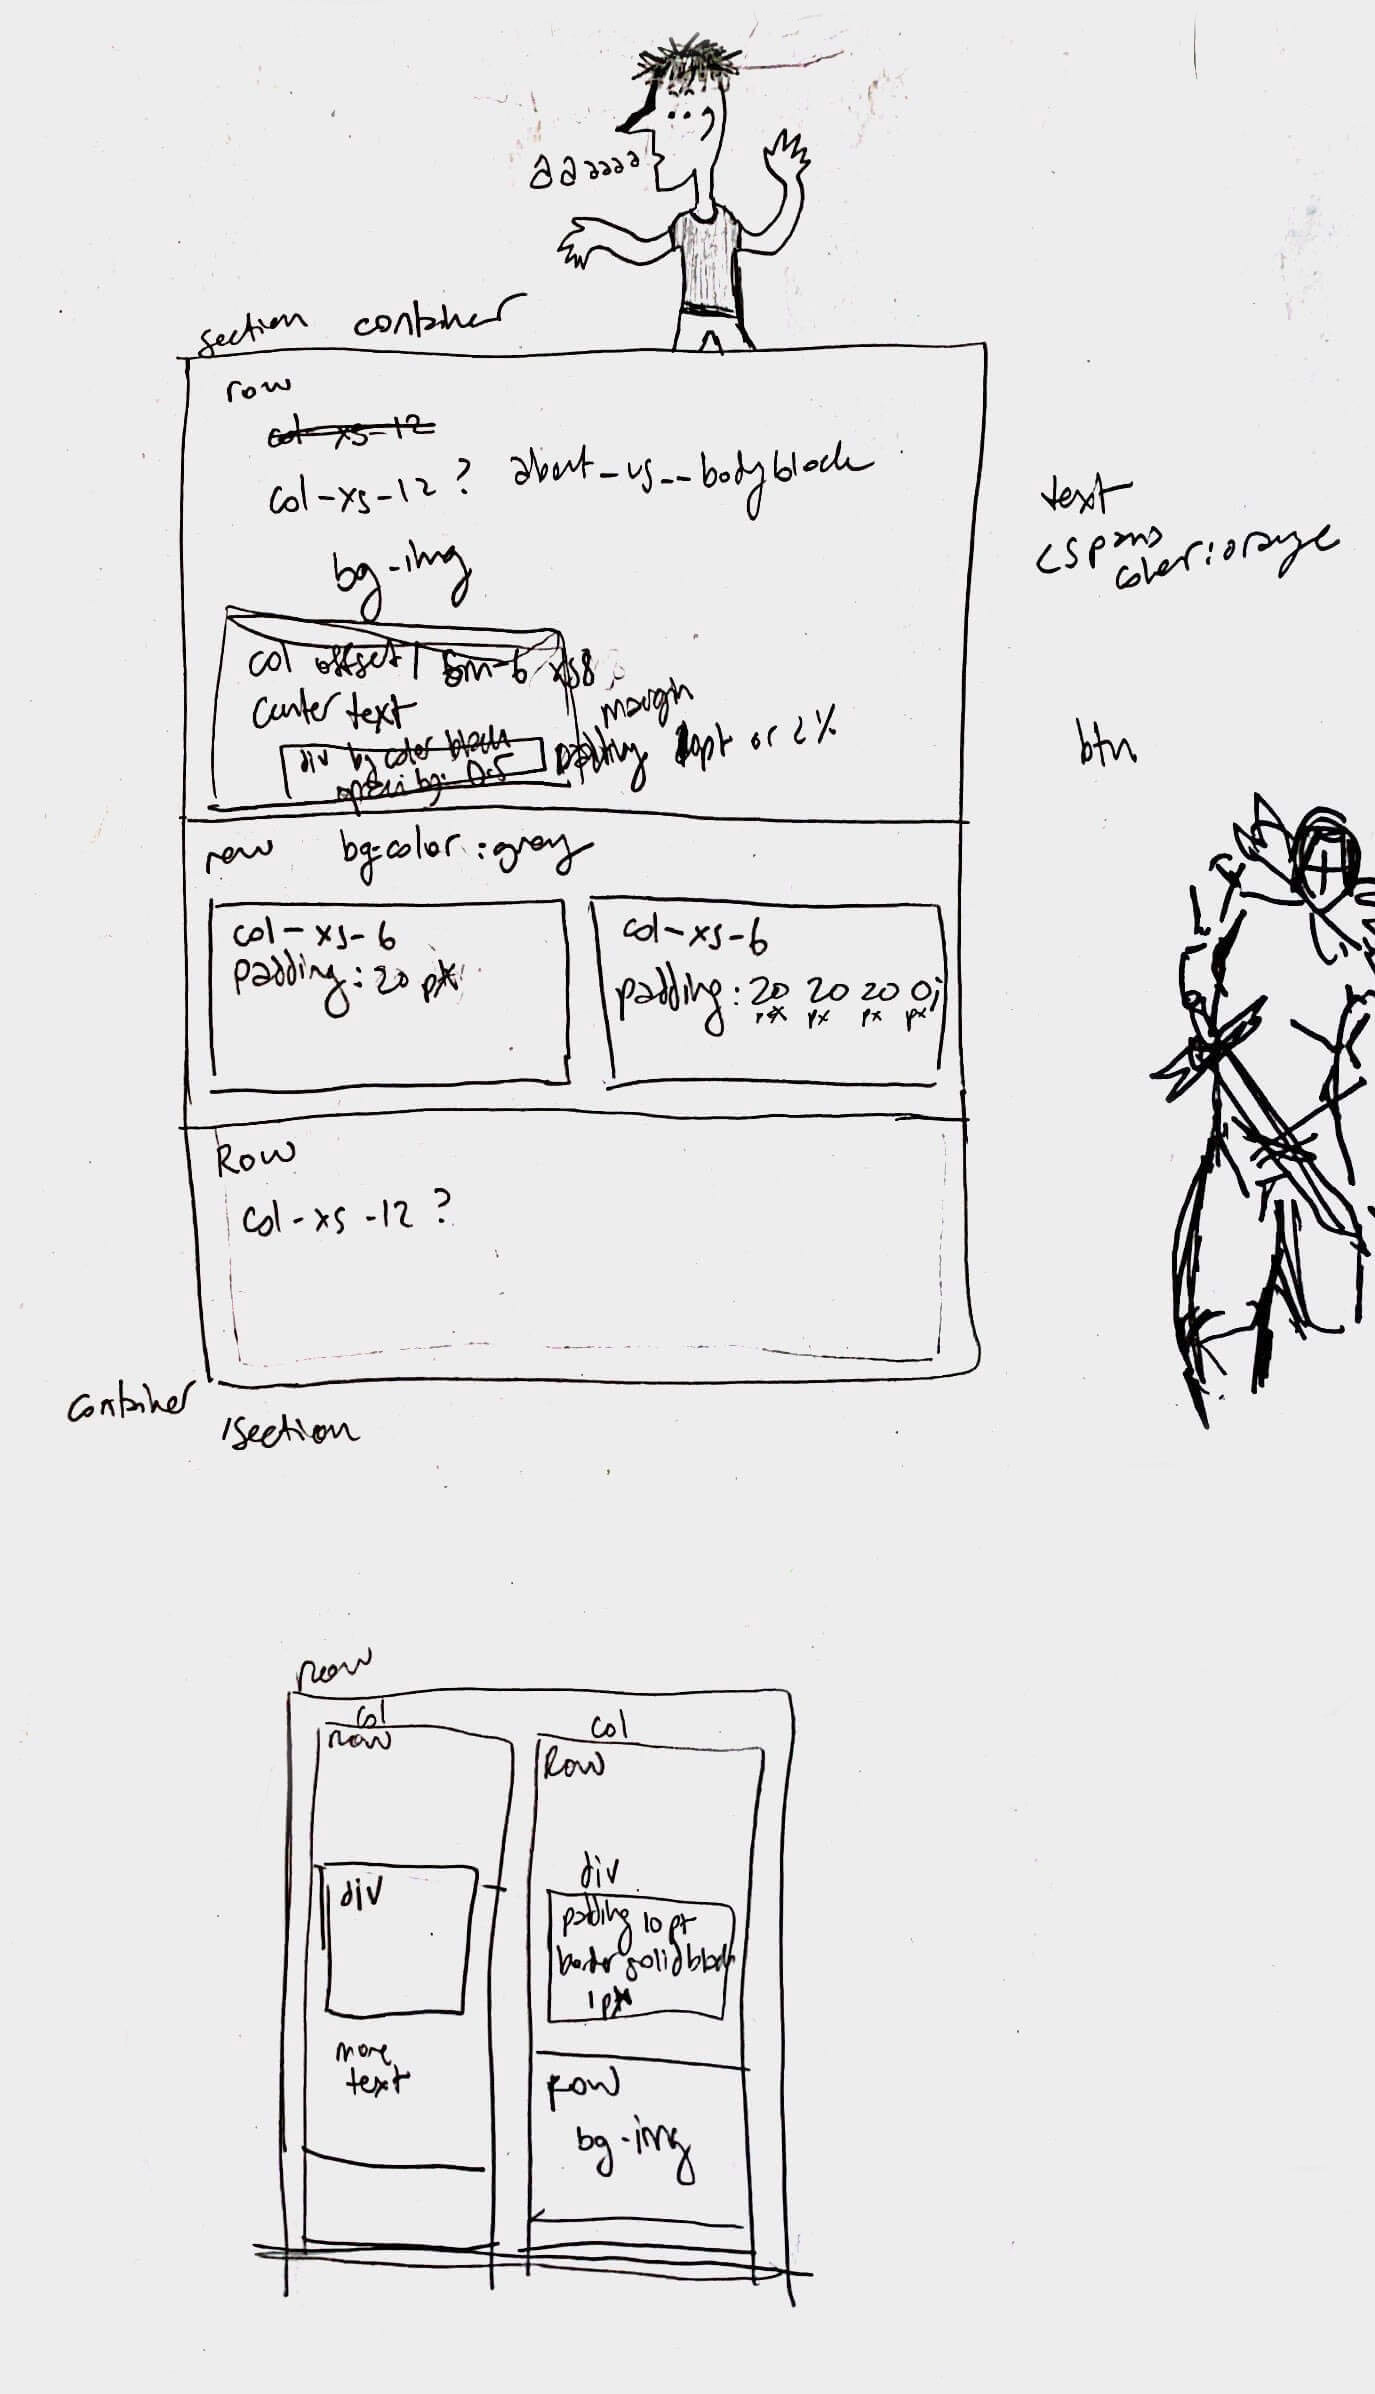 aaaaaa
section container
row
col-xs-12
col-xs-12 ? about-us--bodyblock
bg-img
col offset 1 sm-6 xs8
center text
div bg color black
opacity: 0.5
margin
padding 10pt or 2%
text
<span>
color:orange
btn
row bg-color:gray
col-xs-6
padding: 20 px
col-xs-6
padding: 20 20 20 0;
px px px px
Row
col-xs-12 ?
container
/section
row
col
row
div
more
text
col
Row
div
padding 10 px
border solid black
1 px
Row
bg-img